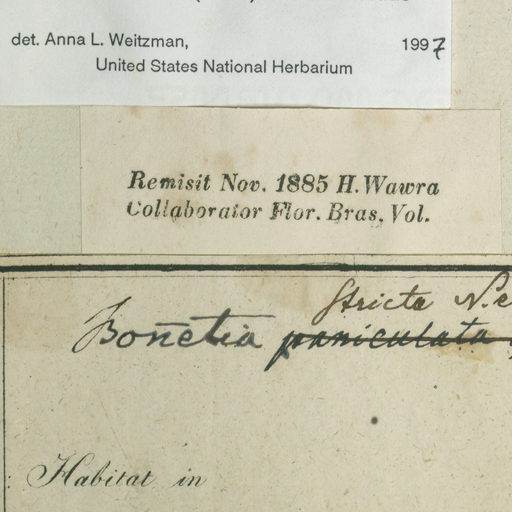 det. Anna L. Weitzman, 1997
United States National Herbarium
Remisit Nov. 1885 H. Wawra
Collaborator Flor. Bras. Vol.
Stricta N. e
Bonnetia paniculata
Habitat in